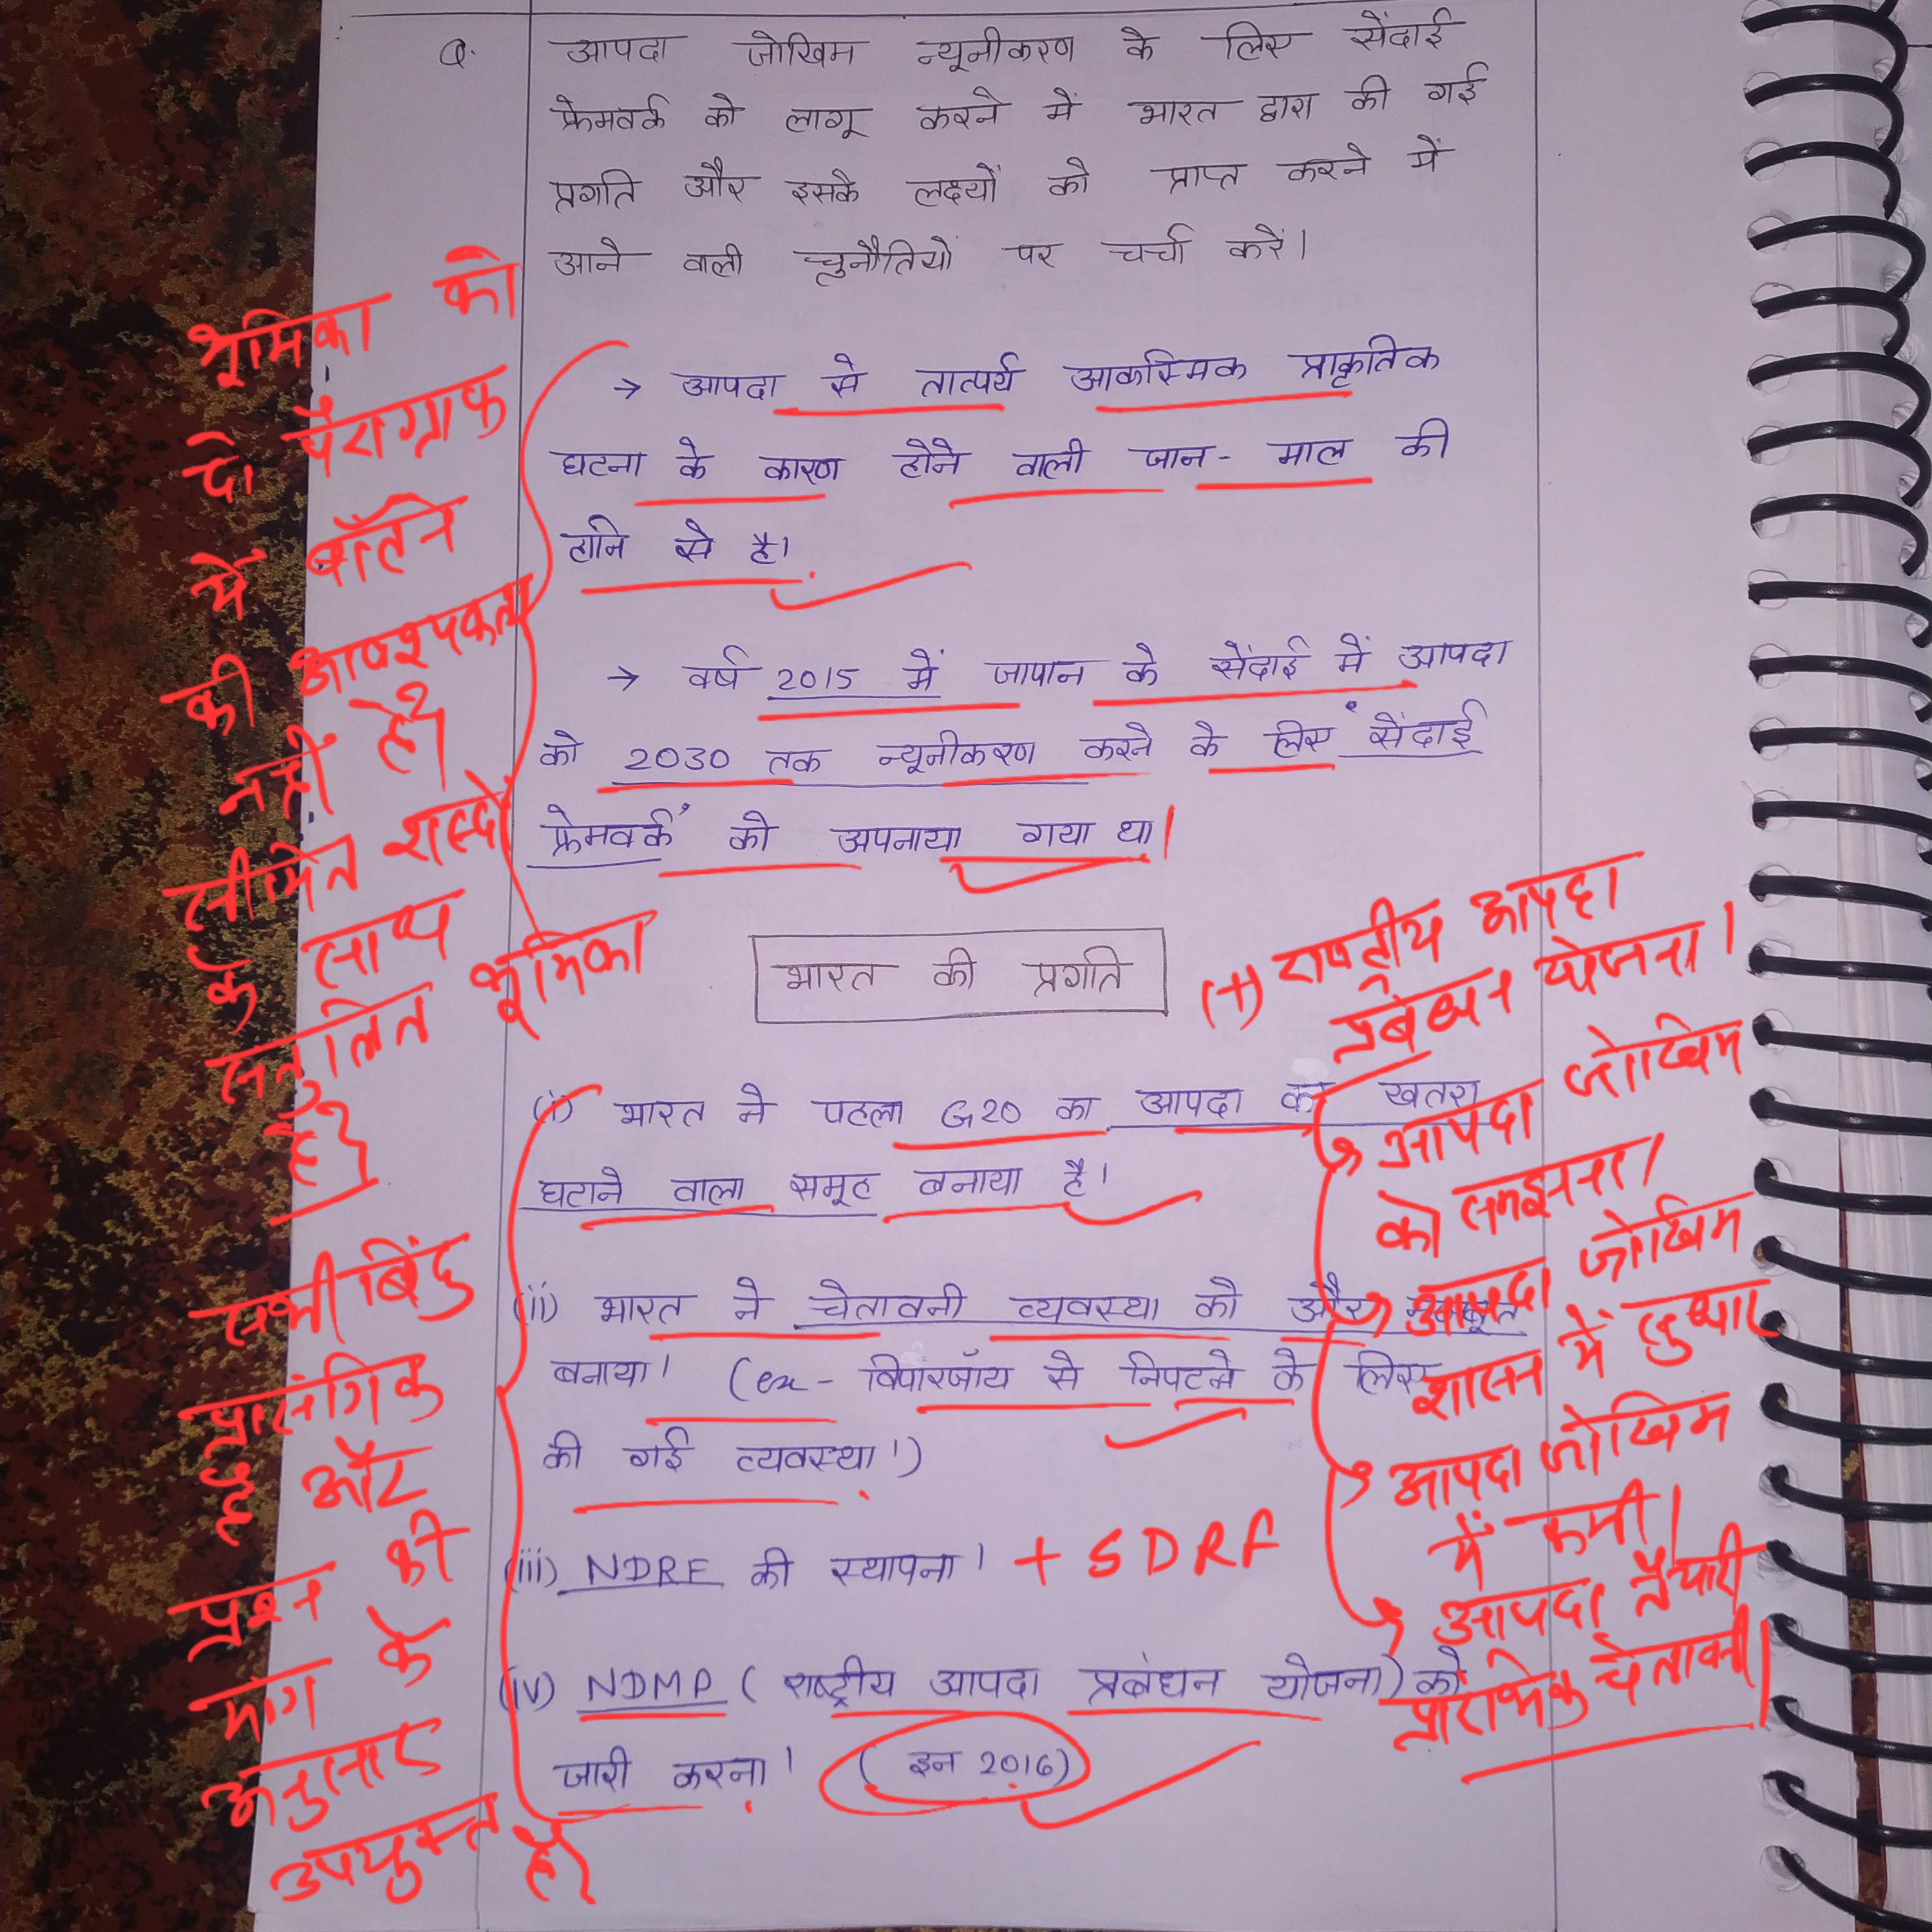 Q. आपदा जोखिम न्यूनीकरण के लिए सेंदाई
फ्रेमवर्क को लागू करने में भारत द्वारा की गई
प्रगति और इसके लक्ष्यों को प्राप्त करने में
आने वाली चुनौतियों पर चर्चा करें।
→ आपदा से तात्पर्य आकस्मिक प्राकृतिक
घटना के कारण होने वाली जान-माल की
हानि से है।
→ वर्ष 2015 में जापान के सेंदाई में आपदा
को 2030 तक न्यूनीकरण करने के लिए 'सेंदाई
फ्रेमवर्क' को अपनाया गया था।
भूमिका को
दो पैराग्राफ
में बाँटने
की आवश्यकता
नहीं है
सीमित शब्दों
के साथ
संतुलित भूमिका
है
भारत की प्रगति
(+) राष्ट्रीय आपदा
प्रबंधन योजना।
(i) भारत ने पहला G20 का आपदा का खतरा
घटाने वाला समूह बनाया है।
(ii) भारत ने चेतावनी व्यवस्था को और मजबूत
बनाया। (ex - बिपारजॉय से निपटने के लिए
की गई व्यवस्था।)
(iii) NDRF की स्थापना। + SDRF
(iv) NDMP (राष्ट्रीय आपदा प्रबंधन योजना) को
जारी करना। (इन 2016)
सभी बिंदु
प्रासंगिक
है और
प्रश्न की
मांग के
अनुसार
उपयुक्त है
आपदा जोखिम
को समझना।
आपदा जोखिम
शासन में सुधार
आपदा जोखिम
में कमी।
आपदा तैयारी
प्रारंभिक चेतावनी।